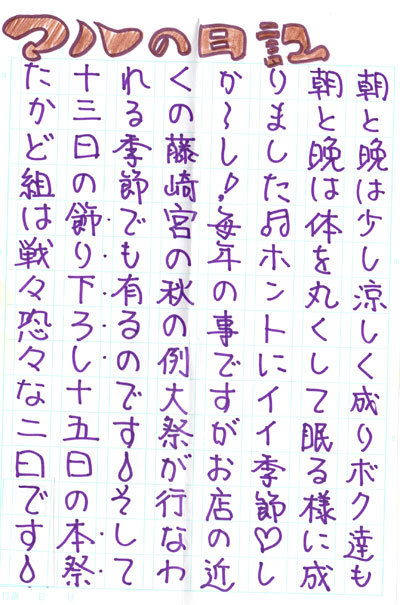 マルの日記
朝と晩は少し涼しく成りボク達も
朝と晩は体を丸くして眠る様に成
りました♫ホントにイイ季節♡し
か〜し!毎年の事ですがお店の近
くの藤崎宮の秋の例大祭が行なわ
れる季節でも有るのです💧そして
十三日の飾り下ろし十五日の本祭
たかど組は戦々恐々な二日です💧